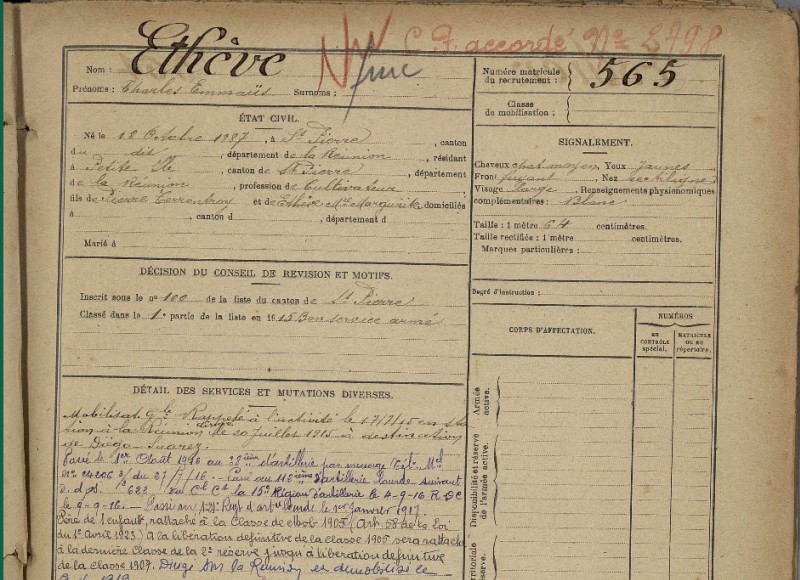 C. F. accordé No 2798
Ethève
Nom :
Prénoms : Charles Emmaüs Surnoms :
Numéro matricule
du recrutement : 565
Classe
de mobilisation :
ÉTAT CIVIL.
Né le 12 Octobre 1887, à St Pierre, canton
du dit, département de la Réunion, résidant
à Petite Ile, canton de St Pierre, département
de la Réunion, profession de Cultivateur
fils de Pierre et de Ethève Mie Marguerite domiciliés
à , canton d , département d
Marié à
SIGNALEMENT.
Cheveux chat. moyen Yeux jaunes
Front fuyant, Nez rectiligne
Visage large, Renseignements physionomiques
complémentaires : Blanc
Taille : 1 mètre 64 centimètres.
Taille rectifiée : 1 mètre centimètres.
Marques particulières :
DÉCISION DU CONSEIL DE REVISION ET MOTIFS.
Inscrit sous le no 100 de la liste du canton de St Pierre
Classé dans le 1e partie de la liste en 1915 Bon service armé
Degré d'instruction :
CORPS D'AFFECTATION.
NUMÉROS
AU
CONTRÔLE
spécial.
MATRICULE
OU AU
répertoire.
Armée
active.
Disponibilité et réserve
de l'armée active.
territoriale
DÉTAIL DES SERVICES ET MUTATIONS DIVERSES.
Mobilisat. Gle Rappelé à l'activité le 17/7/15 en
à la Réunion Dirigé le 20 juillet 1915 à destination
de Diégo-Suarez.
Passé le 1er Août 1916 au d'artillerie par message Tél. Mel
No 24206 3/ du 27/7/16 - Passé au d'artillerie Lourde suivant
622 du Cl Ct la 15e Région d'artillerie le 4-9-16 R DC
le 9-9-16. - Passé au Regt d'artie Lourde le 1er janvier 1917.
Père de 1 enfant, rattaché à la Classe de mob 1905 (Art. 58 de la Loi
du 1er avril 1923) A la libération définitive de la classe 1905 sera rattaché
à la dernière Classe de la 2e réserve jusqu'à libération définitive
de la classe 1907. Dirigé sur la Réunion et démobilisé le
1919